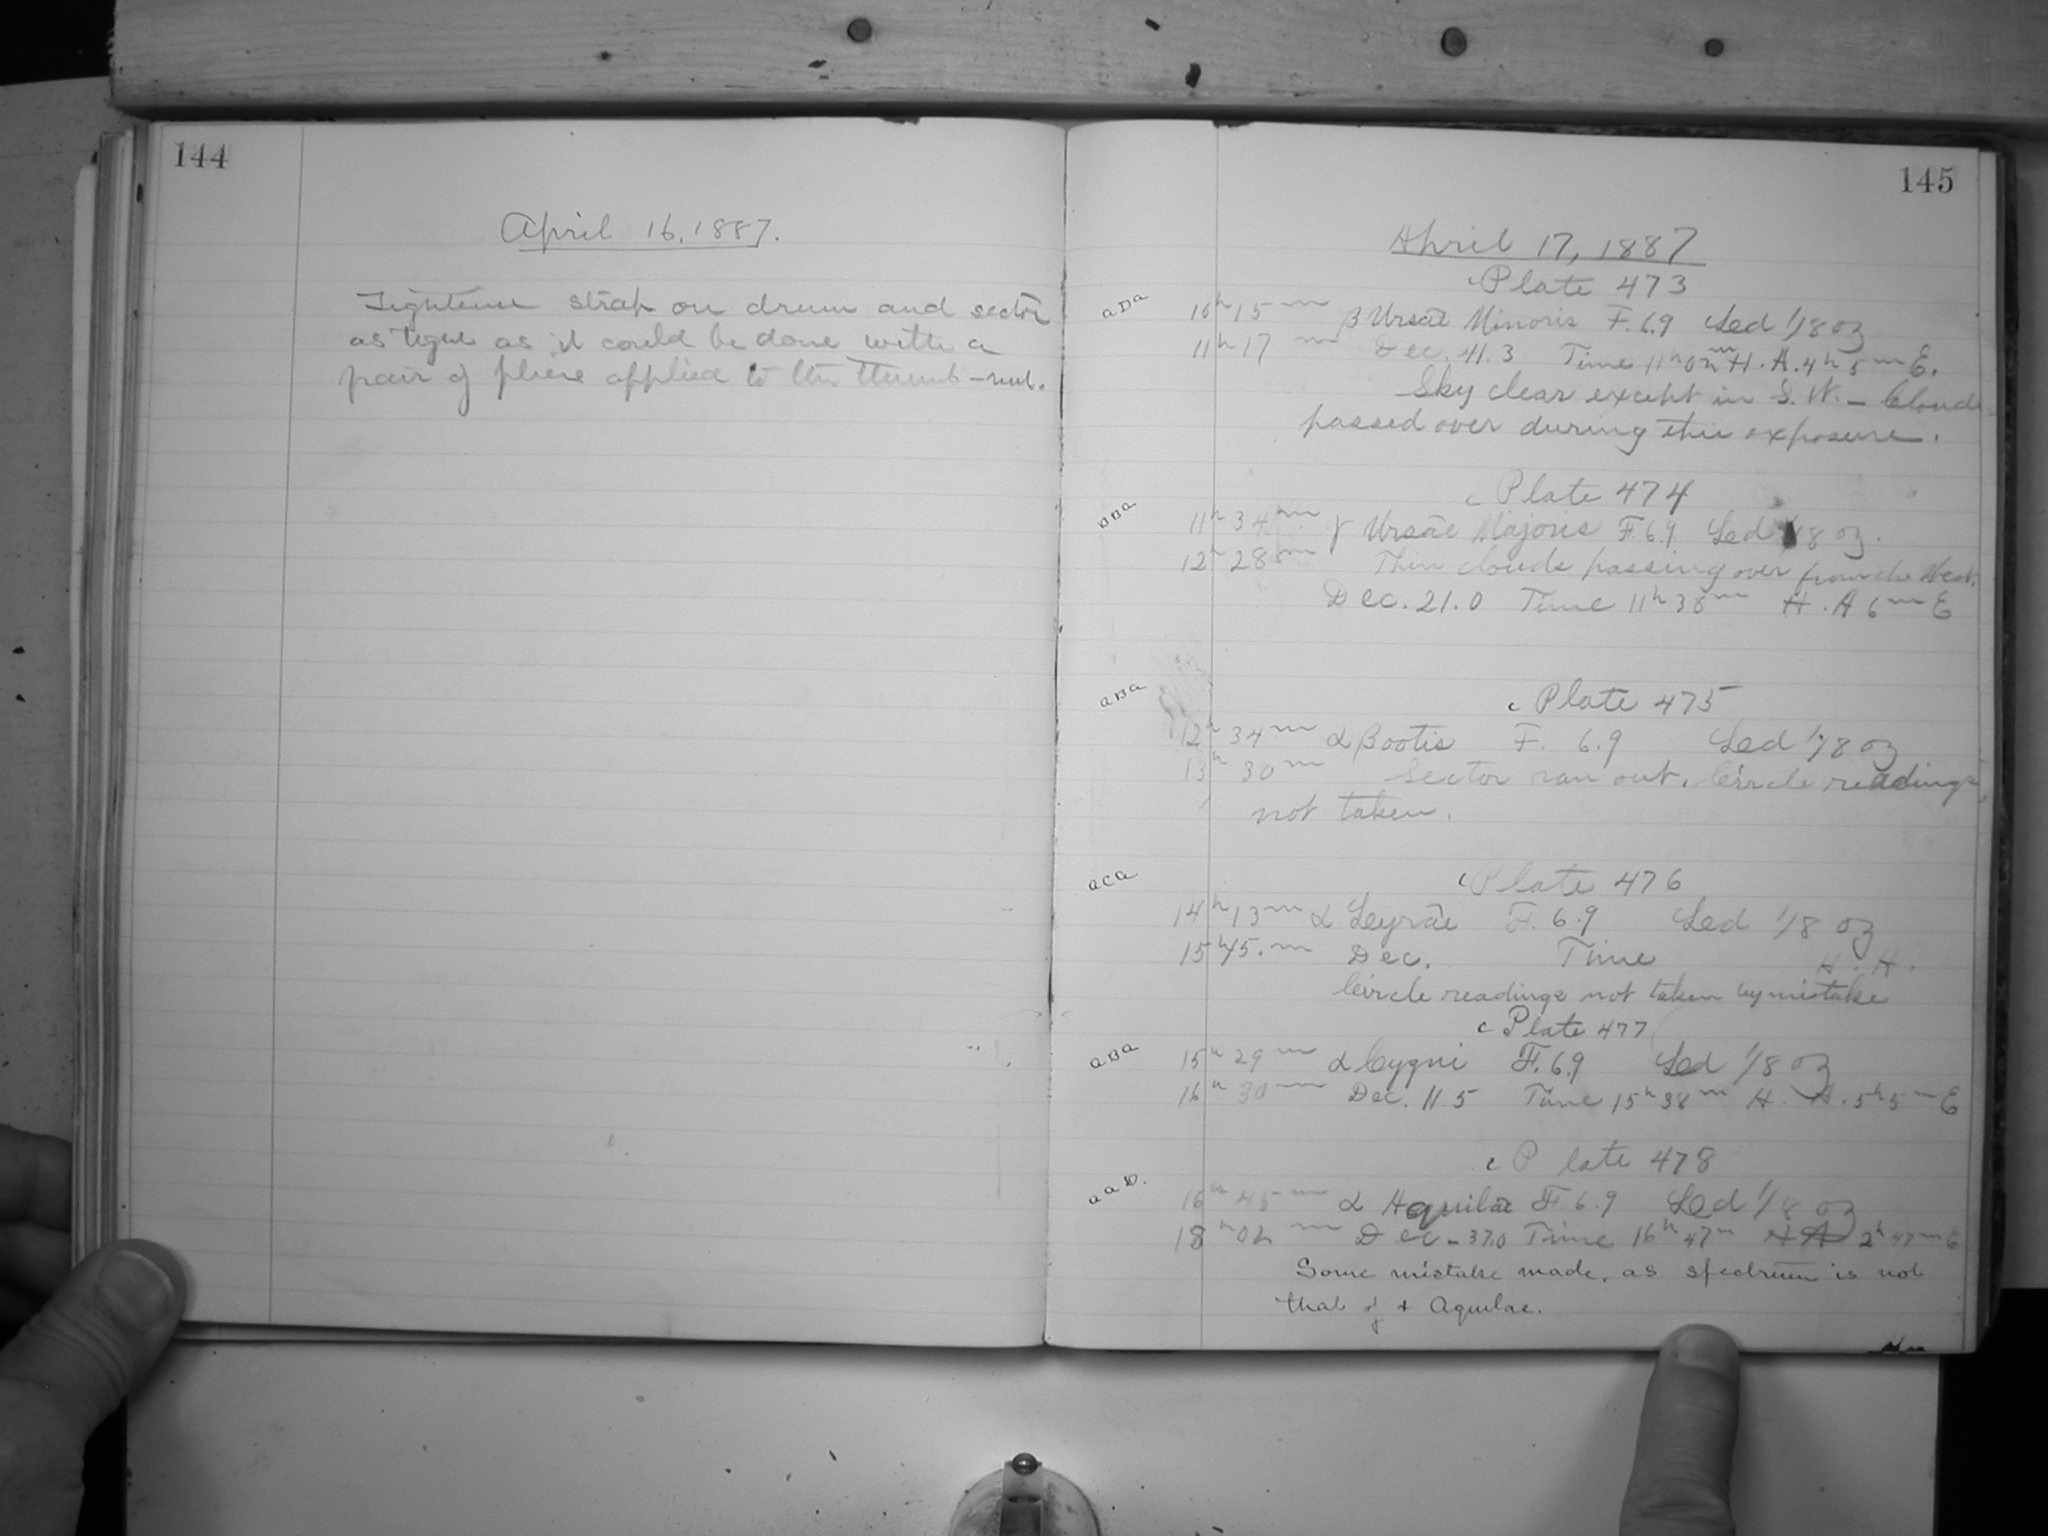 144
April 16, 1887.
Tighten strap on drum and sector
as tight as it could be done with a
pair of pliers applied to the thumb-nut.
145
April 17, 1887
c Plate 473
aDa 10h 15m β Ursae Minoris F. 6.9 Sed 1/8 oz
11h 17m Dec. 41.3 Time 11h 02m H.A. 4h 5m E.
Sky clear except in S.W. – Clouds
passed over during this exposure.
c Plate 474
11h 34m γ Ursae Majoris F. 6.9 Sed 1/8 oz.
12h 28m Thin clouds passing over from the West.
Dec. 21.0 Time 11h 38m H.A 6m E
c Plate 475
aBa 12h 34m α Bootis F. 6.9 Sed 1/8 oz
13h 30m Sector ran out. Circle readings
not taken.
c Plate 476
aca 14h 13m α Leyrae F. 6.9 Sed 1/8 oz
15h 45.m Dec. Time H.A.
Circle readings not taken by mistake
c Plate 477
aBa 15h 29m α Cygni F. 6.9 Sed 1/8 oz
16h 30m Dec. 11.5 Time 15h 38m H.A. 5h 5m E
c Plate 478
16h 45m α Aquilae F 6.9 Sed 1/8 oz
18h 02m Dec – 37.0 Time 16h 47m H A 2h 47m E
Some mistake made, as spectrum is not
that of α Aquilae.